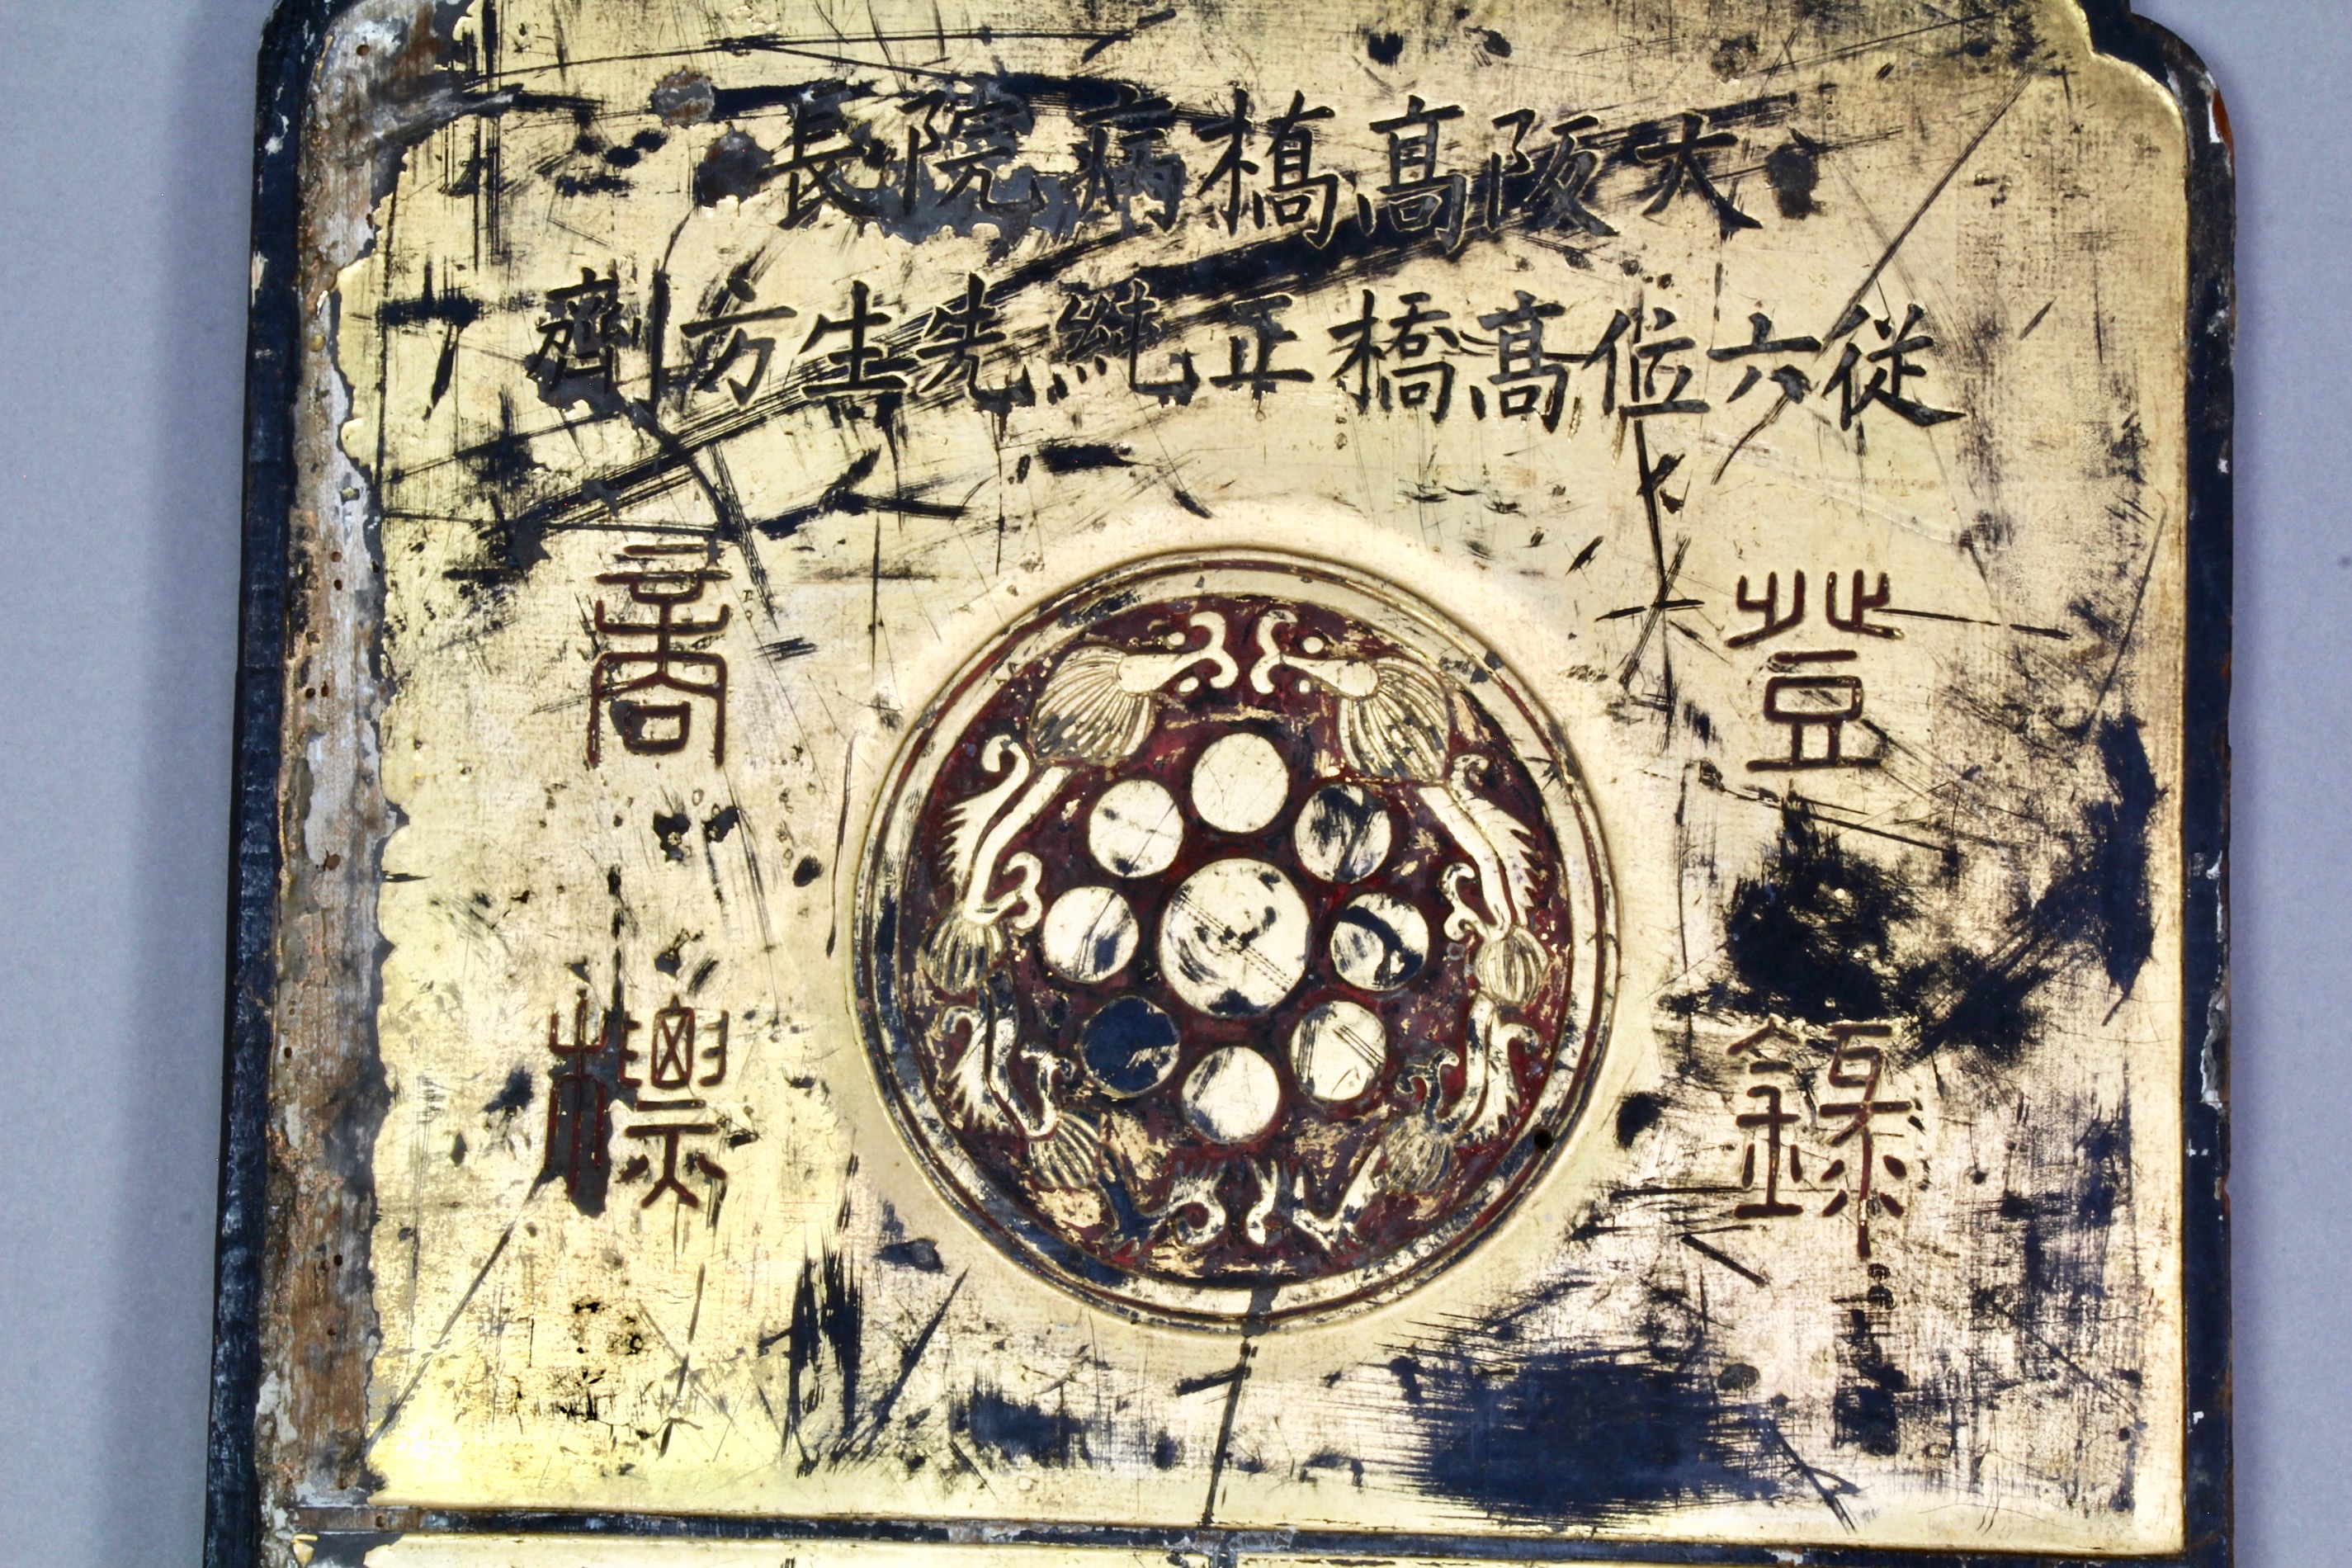 大阪髙橋病院長
従六位髙橋正純先生方劑
登錄
商標